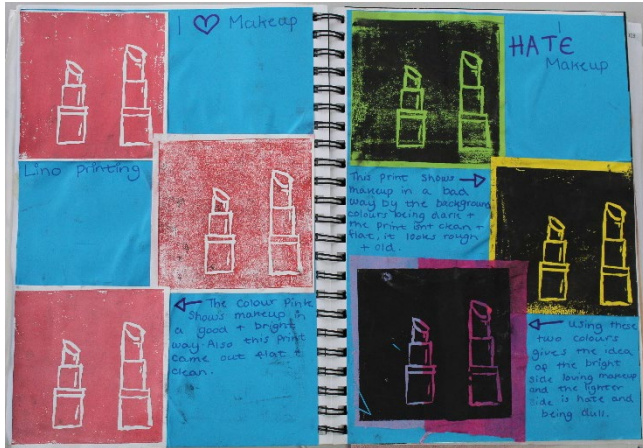 I ♡ Makeup
Lino printing
← The colour Pink
Shows makeup in
a good + bright
way. Also this print
came out flat +
clean.
I
HATE
Makeup
This print shows →
makeup in a bad
way by the background
colours being dark +
the print isnt clean +
flat, it looks rough
+ old.
← using these
two colours
gives the idea
of the bright
side loving makeup
and the lighter
side is hate and
being dull.